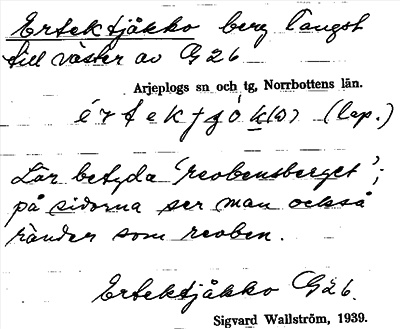 Ertektjåkko berg längst
till väster av G26
Arjeplogs sn och tg, Norrbottens län.
(lap.)
Lär betyda 'reobensberget';
på sidorna ser man också
ränder som reoben.
Ertektjåkko G26.
Sigvard Wallström, 1939.